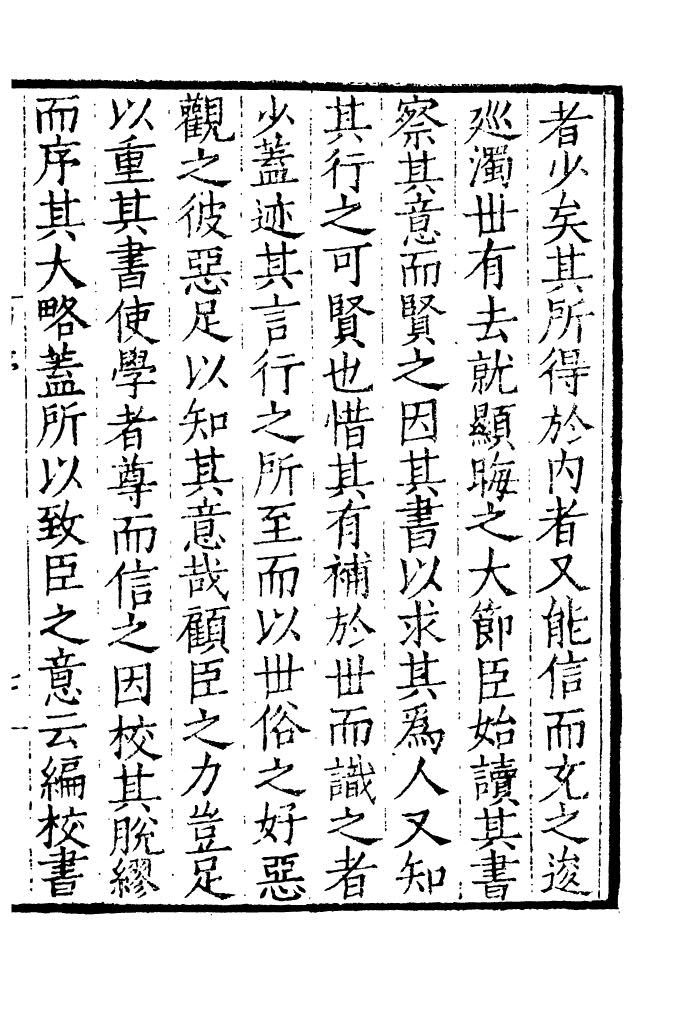 者少矣其所得於内者又能信而充之逡
廵濁丗有去就顯晦之大節臣始讀其書
察其意而賢之因其書以求其爲人又知
其行之可賢也惜其有補於丗而識之者
少蓋迹其言行之所至而以丗俗之好惡
觀之彼惡足以知其意哉顧臣之力豈足
以重其書使學者尊而信之因校其脫繆
而序其大略蓋所以致臣之意云編校書